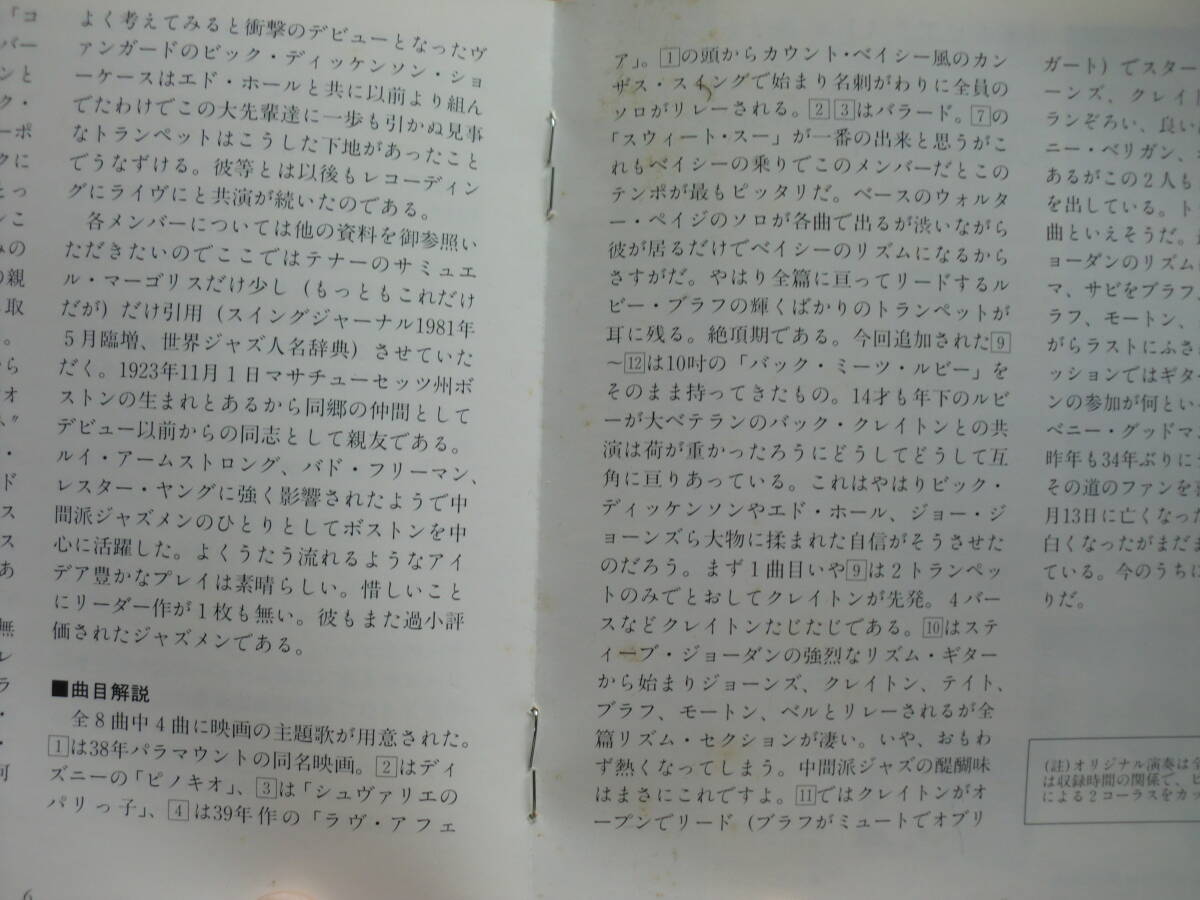 よく考えてみると衝撃のデビューとなったヴ
ァンガードのビック・ディッケンソン・ショ
ーケースはエド・ホールと共に以前より組ん
でたわけでこの大先輩達に一歩も引かぬ見事
なトランペットはこうした下地があったこと
でうなずける。彼等とは以後もレコーディン
グにライヴにと共演が続いたのである。
各メンバーについては他の資料を御参照い
ただきたいのでここではテナーのサミュエ
ル・マーゴリスだけ少し（もっともこれだけ
だが）だけ引用（スイングジャーナル1981年
5月臨増、世界ジャズ人名辞典）させていた
だく。1923年11月1日マサチューセッツ州ボ
ストンの生まれとあるから同郷の仲間として
デビュー以前からの同志として親友である。
ルイ・アームストロング、バド・フリーマン、
レスター・ヤングに強く影響されたようで中
間派ジャズメンのひとりとしてボストンを中
心に活躍した。よくうたう流れるようなアイ
デア豊かなプレイは素晴らしい。惜しいこと
にリーダー作が1枚も無い。彼もまた過小評
価されたジャズメンである。
■曲目解説
全8曲中4曲に映画の主題歌が用意された。
1は38年パラマウントの同名映画。2はディ
ズニーの「ピノキオ」、3は「シュヴァリエの
パリっ子」、4は39年作の「ラヴ・アフェ
6
ア」。1の頭からカウント・ベイシー風のカン
ザス・スイングで始まり名刺がわりに全員の
ソロがリレーされる。2 3はバラード。7の
「スウィート・スー」が一番の出来と思うがこ
れもベイシーの乗りでこのメンバーだとこの
テンポが最もピッタリだ。ベースのウォルタ
ー・ペイジのソロが各曲で出るが渋いながら
彼が居るだけでベイシーのリズムになるから
さすがだ。やはり全篇に亘ってリードするル
ビー・ブラフの輝くばかりのトランペットが
耳に残る。絶頂期である。今回追加された9
～12は10吋の「バック・ミーツ・ルビー」を
そのまま持ってきたもの。14才も年下のルビ
ーが大ベテランのバック・クレイトンとの共
演は荷が重かったろうにどうしてどうして互
角に亘りあっている。これはやはりビック・
ディッケンソンやエド・ホール、ジョー・ジ
ョーンズら大物に揉まれた自信がそうさせた
のだろう。まず1曲目いや9は2トランペッ
トのみでとおしてクレイトンが先発。4バー
スなどクレイトンたじたじである。10はステ
ィーブ・ジョーダンの強烈なリズム・ギター
から始まりジョーンズ、クレイトン、テイト、
ブラフ、モートン、ベルとリレーされるが全
篇リズム・セクションが凄い。いや、おもわ
ず熱くなってしまう。中間派ジャズの醍醐味
はまさにこれですよ。11ではクレイトンがオ
ープンでリード（ブラフがミュートでオブリ
ガート）でスター
ーンズ、クレイト
ランぞろい、良い
ニー・ベリガン、
あるがこの2人も
を出している。ト
曲といえそうだ。
ョーダンのリズム
マ、サビをブラフ
ラフ、モートン、
がらラストにふさ
ッションではギタ
ンの参加が何とい
ベニー・グッドマ
昨年も34年ぶりに
その道のファンを
月13日に亡くなった
白くなったがまだま
ている。今のうちに
りだ。
(註)オリジナル演奏は全
は収録時間の関係で、ピ
による2コーラスをカッ